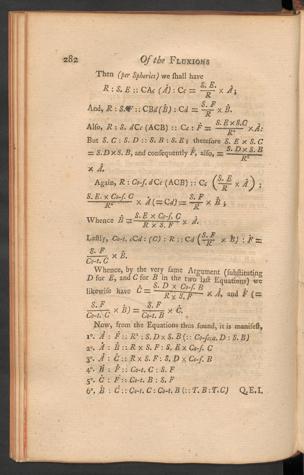 282 Of the FLUXIONS
Then (per Spherics) we shall have
R : S. E :: CAc (Ȧ) : Cc = S. E./R × Ȧ;
And, R : S. F :: CBd (Ḃ) : Cd = S. F/R × Ḃ.
Also, R : S. dCc (ACB) :: Cc : Ḟ = S. E × S. C/R² × Ȧ:
But S. C : S. D :: S. B : S. E; therefore S. E × S. C
= S. D × S. B, and consequently Ḟ, also, = S. D × S. B/R²
× Ȧ.
Again, R : Co-s. dCc (ACB) :: Cc (S. E/R × Ȧ) :
S. E × Co-s. C/R² × Ȧ (= Cd) = S. F/R × Ḃ;
Whence Ḃ = S. E × Co-s. C/R × S. F × Ȧ.
Lastly, Co-t. cCd : (C) : R :: Cd (S. F/R × Ḃ) : Ḟ =
S. F/Co-t. C × Ḃ.
Whence, by the very same Argument (substituting
D for E, and C for B in the two last Equations) we
likewise have Ċ = S. D × Co-s. B/R × S. F × Ȧ, and Ḟ (=
S. F/Co-t. C × Ḃ) = S. F/Co-t. B × Ċ.
Now, from the Equations thus found, it is manifest,
1°. Ȧ : Ḟ :: R² : S. D × S. B (:: D : S. B)
2°. Ȧ : Ḃ :: R × S. F : S. E × Co-s. C
3°. Ȧ : Ċ :: R × S. F : S. D × Co-s. B
4°. Ḃ : Ḟ :: Co-t. C : S. F
5°. Ċ : Ḟ :: Co-t. B : S. F
6°. Ḃ : Ċ :: Co-t. C : Co-t. B (:: T. B : T. C) Q.E.I.